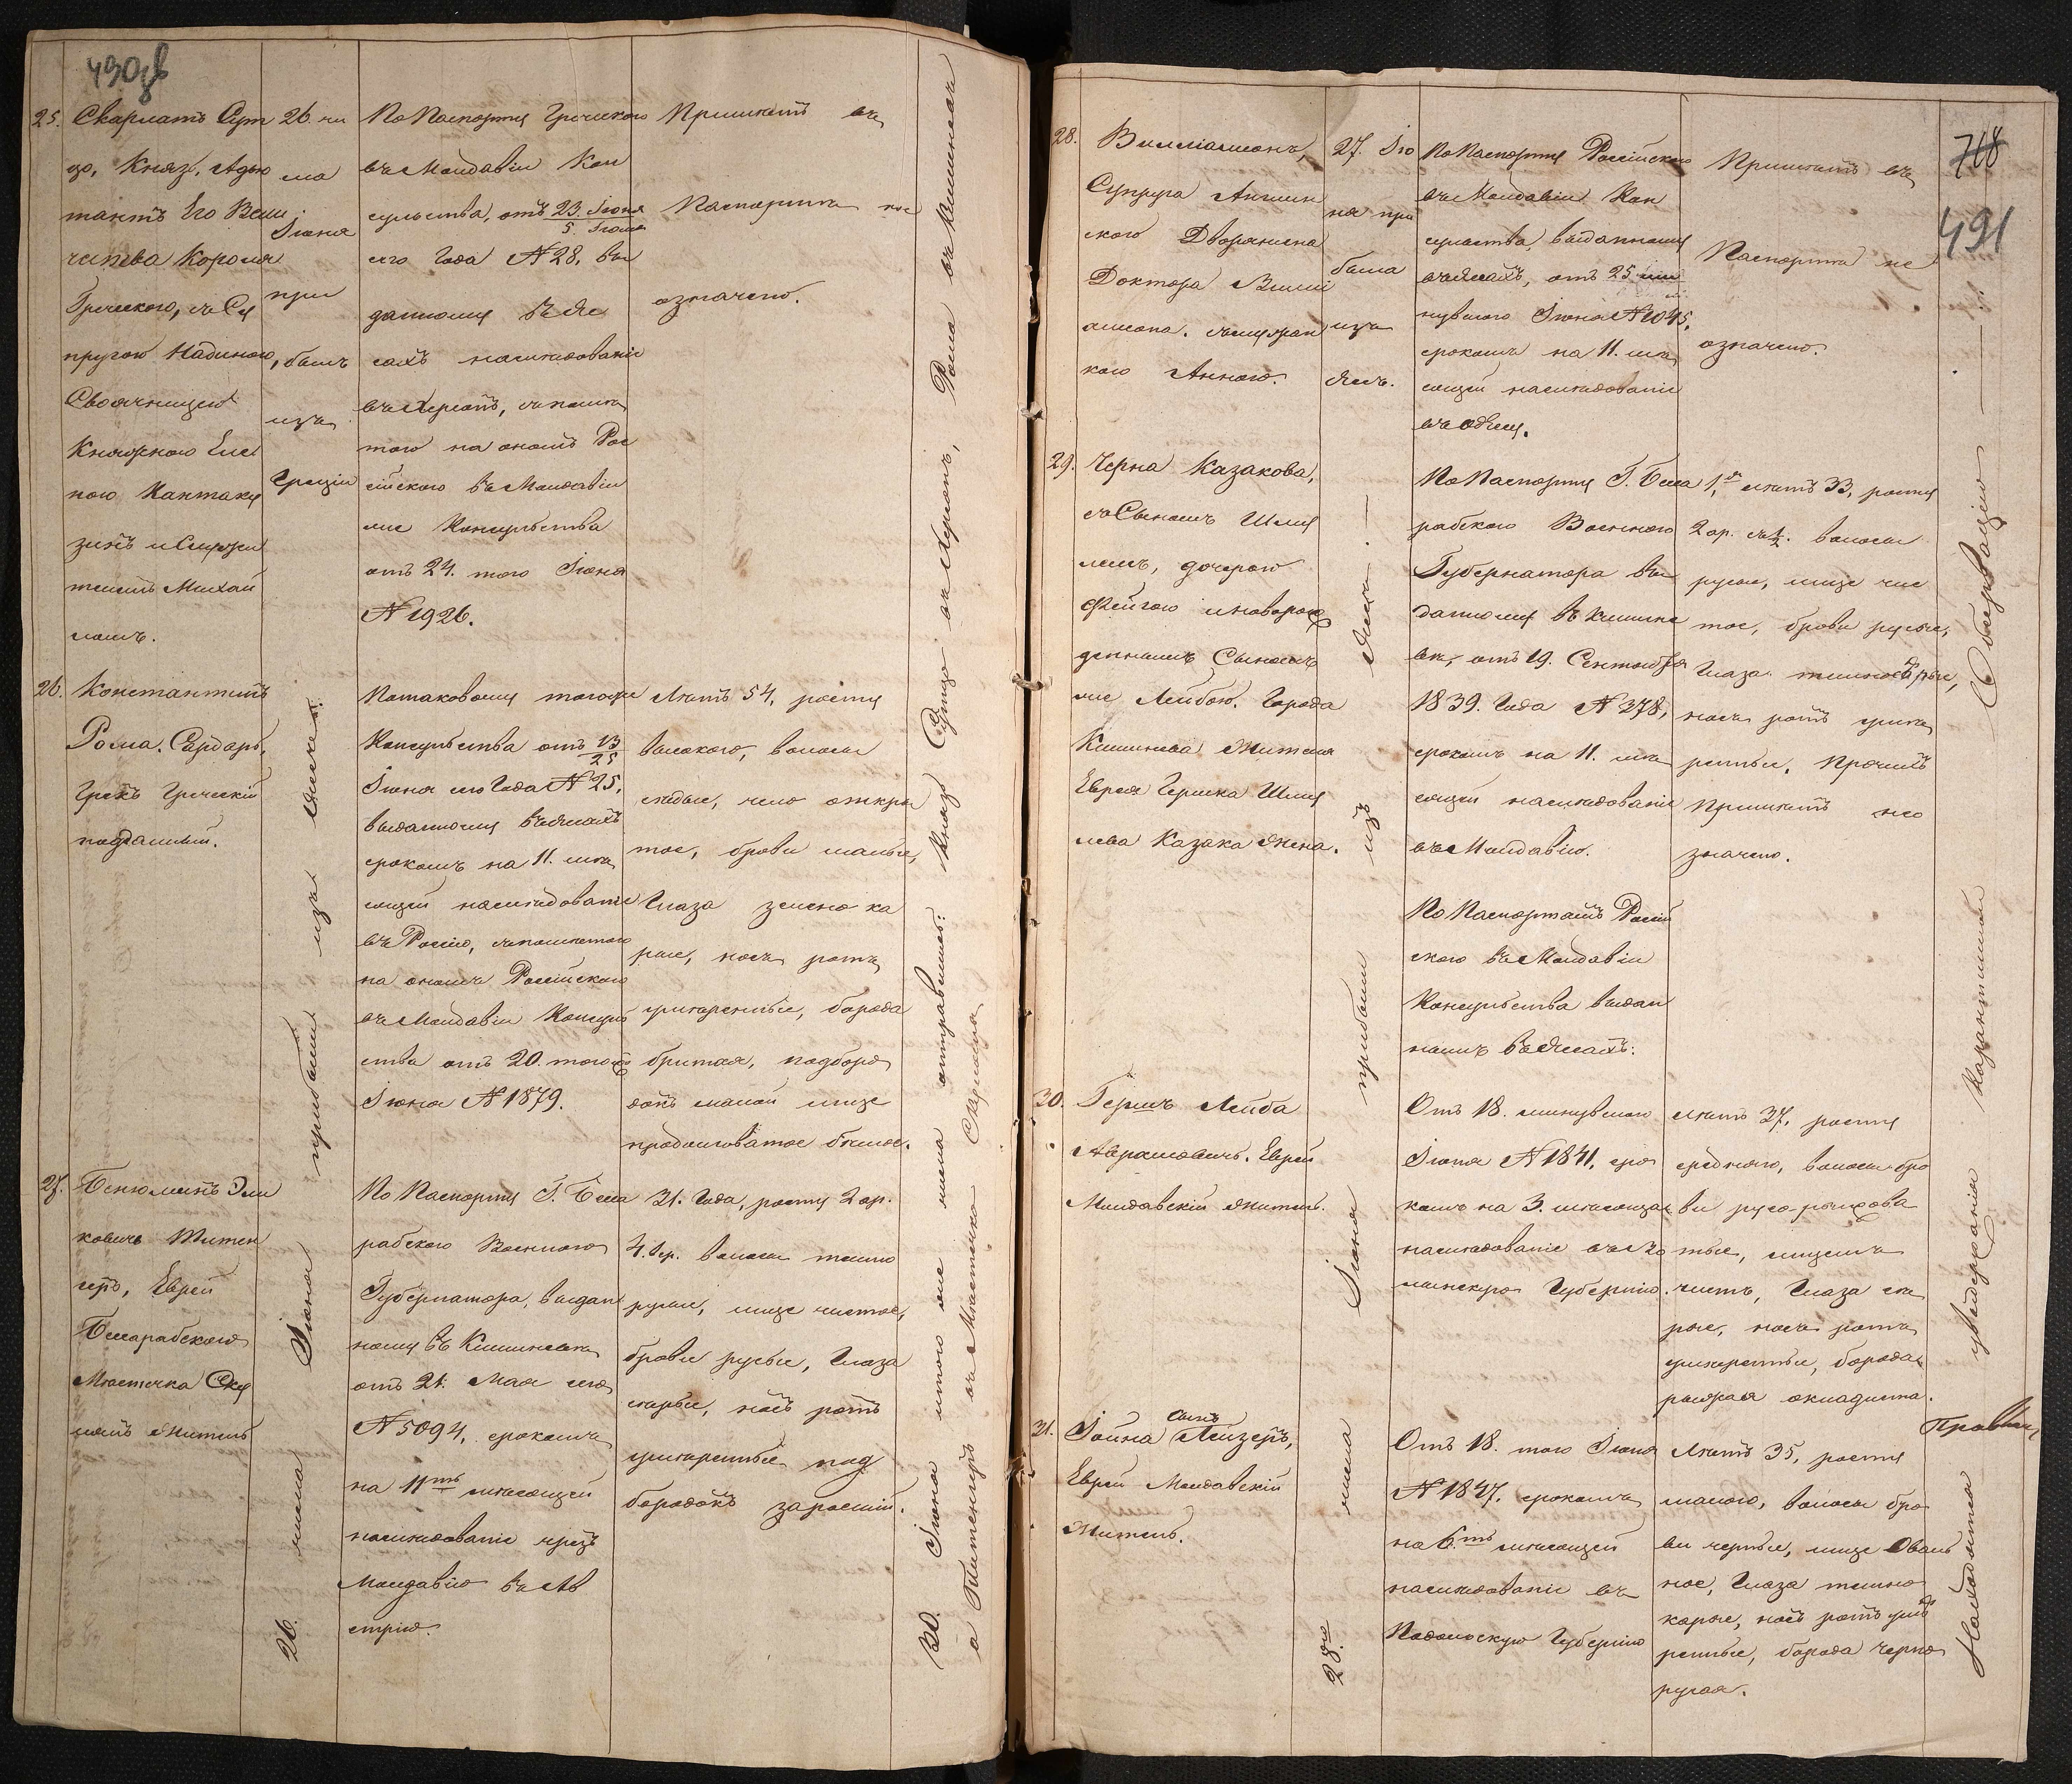 490об
25.
Скарлатъ Сут
цо, Князь, Адью
тантъ Его Вели
чества Короля
Греческого, съ Су
пругою Надиною,
Своячницею
Княжною Еле
ною Кантаку
зинъ и Служи
телемъ Михай
ломъ.
26. чи
сла
Іюня
при
былъ
изъ
Греціи
По Паспорту Греческого
въ Молдавіи Кон
сульства, отъ 23. Іюня
5 Іюля
сего Года №28, вы
данному въ Яс
сахъ наслѣдованіе
въ Херсонъ, съ помѣ
тою на ономъ Рос
сійского въ Молдавіи
Консульства
отъ 24. того Іюня
№1926.
Примѣтъ въ
Паспортѣ не
означено.
26.
Константинъ
Рома. Сардарь,
Грекъ Греческій
подданный.
По таковому того же
Консульства отъ 13/25
Іюня сего Года №25,
выданному въ Яссахъ
срокомъ на 11. мѣ
сяцей наслѣдованіе
въ Россію, съ помѣтою
на ономъ Россійского
въ Молдавіи Консуль
ства отъ 20. того же
Іюня №1879.
Лѣтъ 54, росту
высокого, волосы
сѣдые, чело откры
тое, брови малые,
Глаза зелено ка
рые, носъ ротъ
умѣренные, борода
бритая, подборо
докъ малой лице
продолговатое бѣлое.
27.
Беньоминъ
ковичь
Еврей
Бессарабского
Мѣстечка Ску
лянъ Житель
По Паспорту Г. Бесса
рабского Военного
Губернатора, выдан
ному въ Кишиневѣ
отъ 21. Мая сего
№5094, срокомъ
на 11ть мѣсяцей
наслѣдованіе чрезъ
Молдавію въ Ав
стрію.
31. Года, росту 2 ар.
4. вер. волосы темно
русые, лице чистое,
брови русые, Глаза
сѣрые, носъ ротъ
умѣренные под
бородокъ заросшій.
26. числа Іюня прибыли изъ Яссъ.
30. Іюня числа отправились: Князь Сутцо въ Херсонъ, Рома въ Кишиневъ
въ Мѣстечко Скуляны
718
491
28.
Вилліамсонъ,
Супруга Англій
ского Дворянина
Доктора Вилли
амсона. съ
кою Анною.
27. Ію
ня при
была
изъ
Яссъ.
По Паспорту Россійского
въ Молдавіи Кон
сульства, выданному
въ Яссахъ, отъ 25 ми
нувшого Іюня №2045.
срокомъ на 11. мѣ
сяцей наслѣдованіе
въ Одессу.
Примѣтъ въ
Паспортѣ не
означено.
29.
Черна Казакова,
съ Сыномъ Шму
лемъ, дочерью
Фейгою и новорож
деннымъ Сыномъ
Лейбою. Города
Кишинева Жителя
Еврея Гершка Шму
лева Казака Жена.
По Паспорту Г. Бесса
рабского Военного
Губернатора вы
данному въ Кишине
вѣ, отъ 19. Сентября
1839. Года №378,
срокомъ на 11. мѣ
сяцей наслѣдованіе
въ Молдавію.
1я, лѣтъ 33, росту
2 ар. съ ½. волосы
русые, лице чис
тое, брови русые,
Глаза темносѣрые,
носъ ротъ умѣ
ренные. Прочимъ
Примѣтъ не о
значено.
По Паспортамъ Россій
ского въ Молдавіи
Консульства выдан
нымъ въ Яссахъ:
30.
Гершъ Лейба
Абрамовичь. Еврей
Молдавскій Житель.
Отъ 18. минувшого
Іюня №1841, сро
комъ на 3. мѣсяца
наслѣдованіе въ Во
лынскую Губернію.
Лѣтъ 37, росту
средняго, волосы бро
ви русо рыжова
тые, лицемъ
чистъ, Глаза сѣ
рые, носъ ротъ
умѣренные, борода
рыжая окладиста.
31.
Іойна сынъ Лейзеръ,
Еврей Молдавскій
Житель.
Отъ 18. того Іюня
№1847. срокомъ
на 6.ть мѣсяцей
наслѣдованіе въ
Подольскую Губернію
Лѣтъ 35, росту
малого, волосы бро
ви черные, лице оваль
ное, Глаза темно
карые, носъ ротъ умѣ
ренные, борода черно
русая.
28го числа Іюня прибыли изъ Яссъ
Находятся у выдержанія Карантинной Обсерваціи